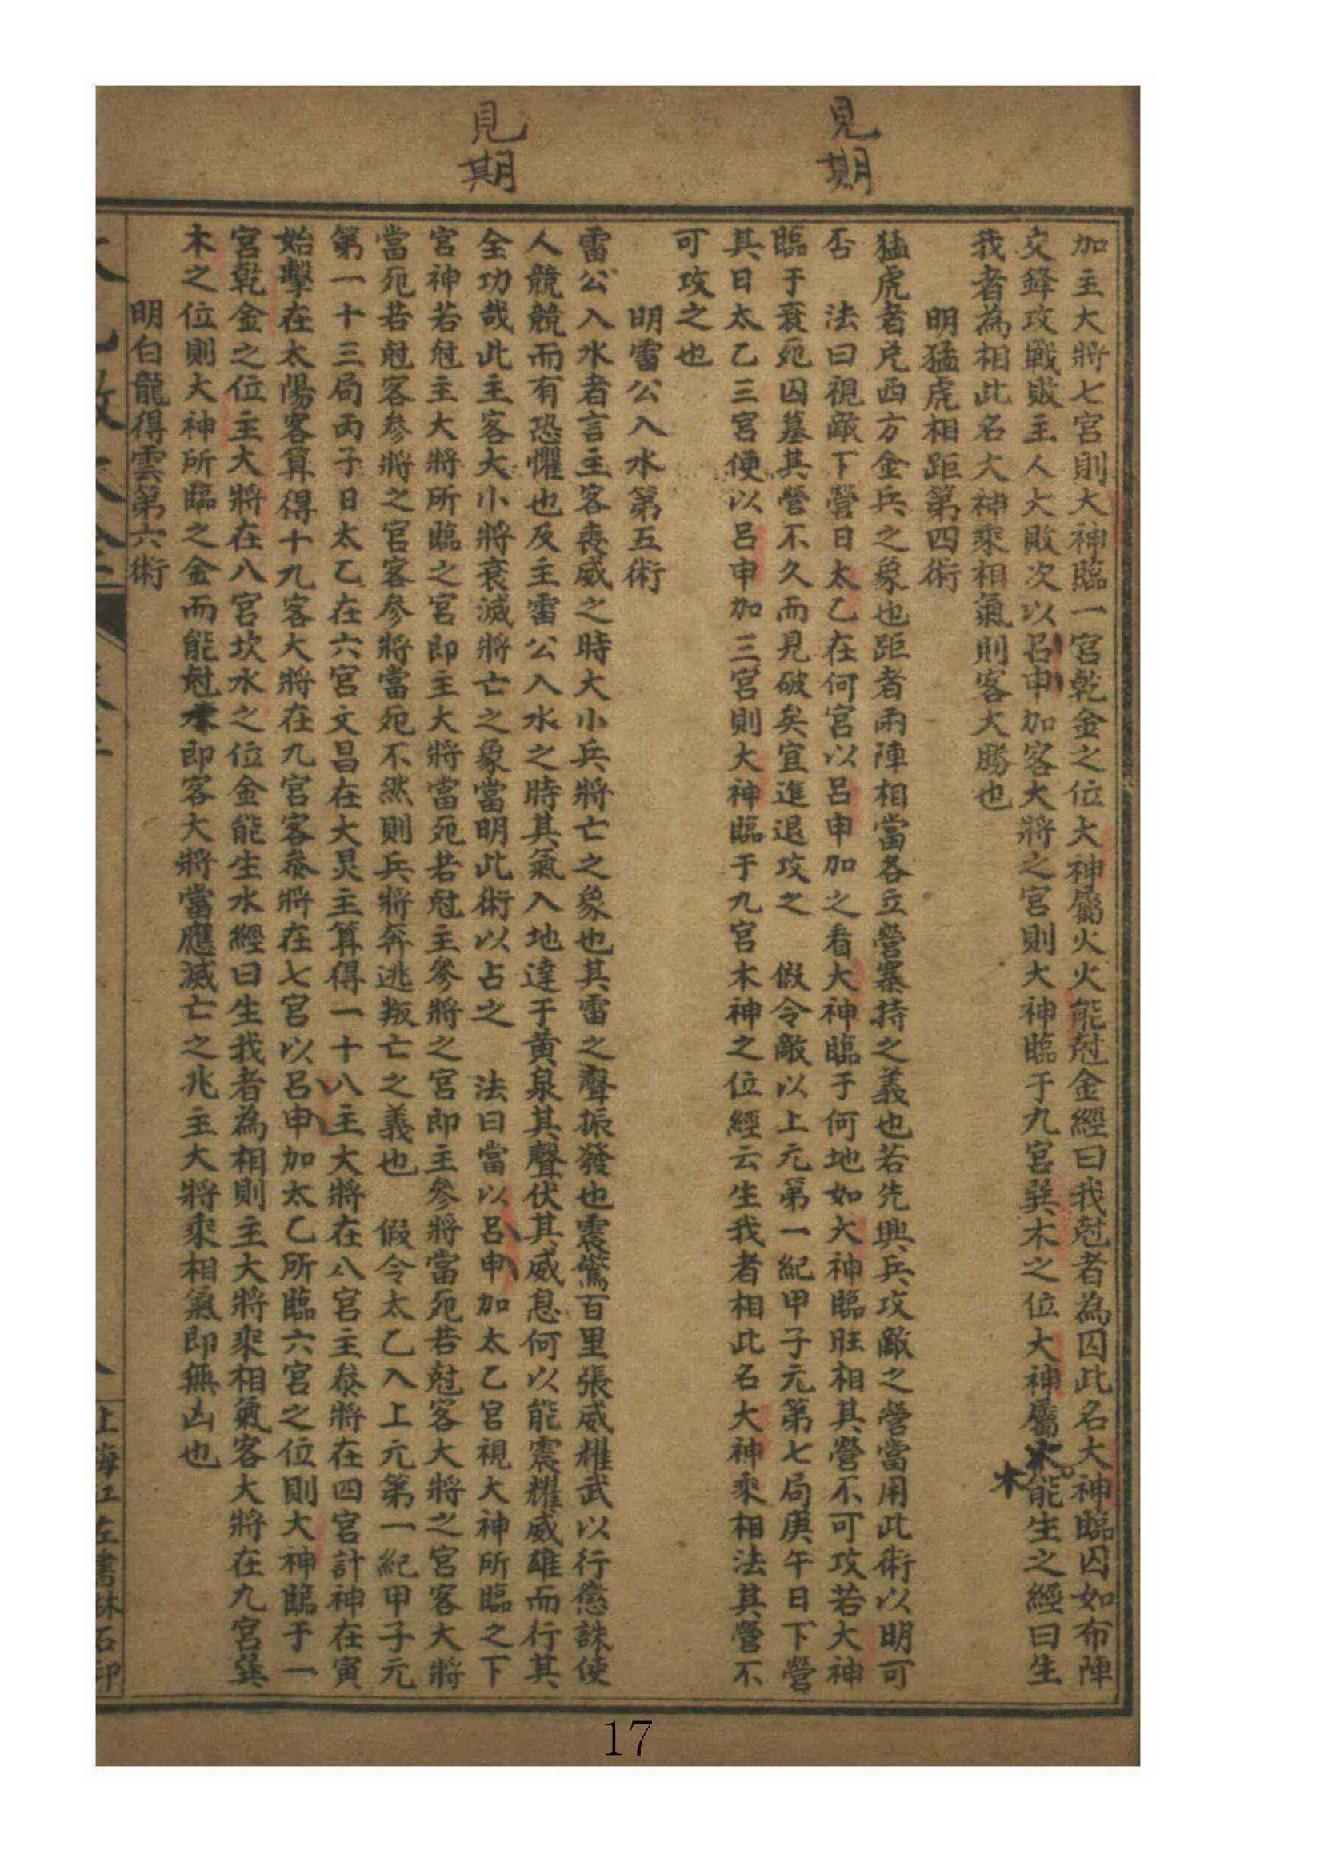 見期
見期
加主大將七宮則大神臨一宮乾金之位大神屬火火能尅金經曰我尅者為囚此名大神臨囚如布陣
交鋒攻戰敗主人大敗次以呂申加客大將之宮則大神臨于九宮巽木之位大神屬木能生之經曰生
木
我者為相此名大神乘相氣則客大勝也
明猛虎相距第四術
猛虎者兑西方金兵之象也距者兩陣相當各立營寨持之義也若先興兵攻敵之營當用此術以明可
否　法曰視敵下營日太乙在何宮以呂申加之看大神臨于何地如大神臨旺相其營不可攻若大神
臨于衰死囚墓其營不久而見破矣宜進退攻之　假令敵以上元第一紀甲子元第七局庚午日下營
其日太乙三宮便以呂申加三宮則大神臨于九宮木神之位經云生我者相此名大神乘相法其營不
可攻之也
明雷公入水第五術
雷公入水者言主客喪威之時大小兵將亡之象也其雷之聲振發也震驚百里張威耀武以行懲誅使
人競競而有恐懼也及主雷公入水之時其氣入地達于黄泉其聲伏其威息何以能震耀威雄而行其
全功哉此主客大小將衰滅將亡之象當明此術以占之　法曰當以呂申加太乙宮視大神所臨之下
宮神若尅主大將所臨之宮即主大將當死若尅主參將之宮即主參將當死若尅客大將之宮客大將
當死若尅客參將之宮客參將當死不然則兵將奔逃叛亡之義也　假令太乙入上元第一紀甲子元
第一十三局丙子日太乙在六宮文昌在大炅主算得一十八主大將在八宮主叅將在四宮計神在寅
始擊在太陽客算得十九客大將在九宮客叅將在七宮以呂申加太乙所臨六宮之位則大神臨于一
宮乾金之位主大將在八宮坎水之位金能生水經曰生我者為相則主大將乘相氣客大將在九宮巽
木之位則大神所臨之金而能尅木即客大將當應滅亡之兆主大將乘相氣即無凶也
明白龍得雲第六術
上海江左書林石印
17